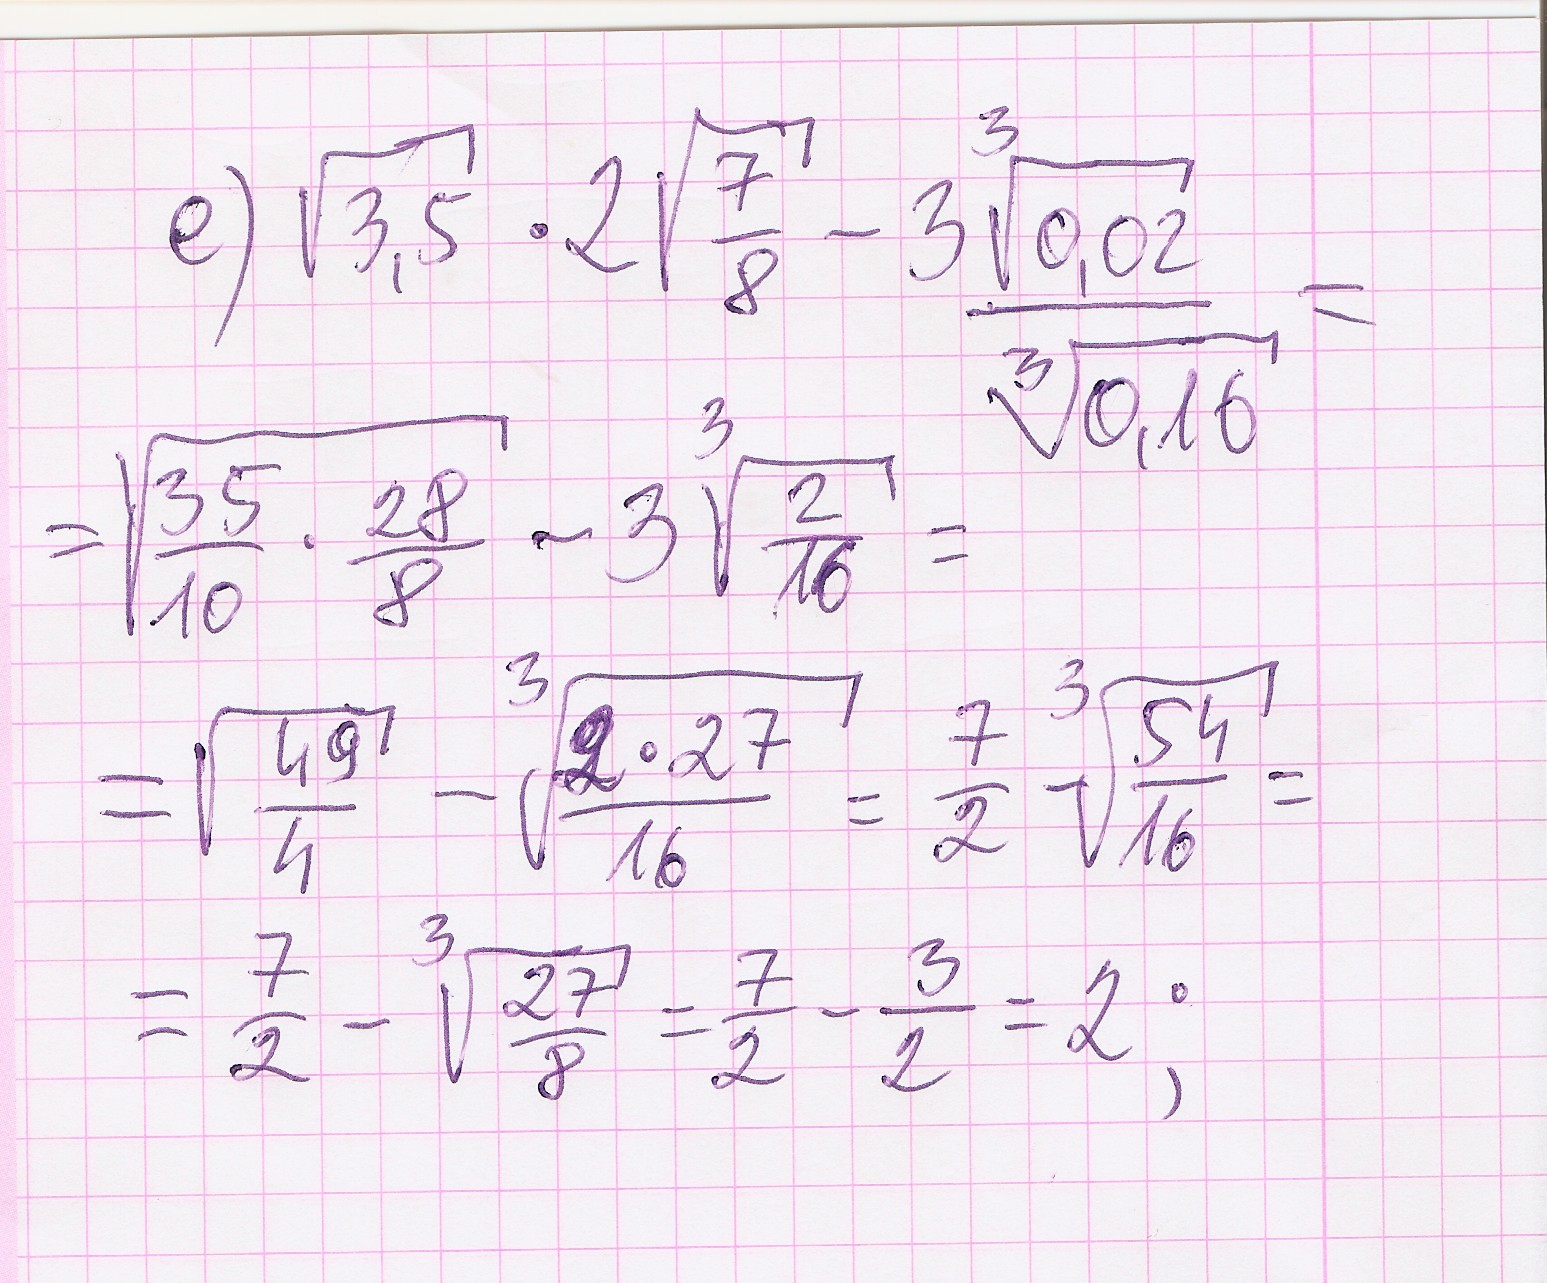 е) √3,5 · 2√(7/8) − 3 ∛0,02 / ∛0,16 =
= √(35/10 · 28/8) − 3 ∛(2/16) =
= √(49/4) − ∛(2·27/16) = 7/2 − ∛(54/16) =
= 7/2 − ∛(27/8) = 7/2 − 3/2 = 2 ;